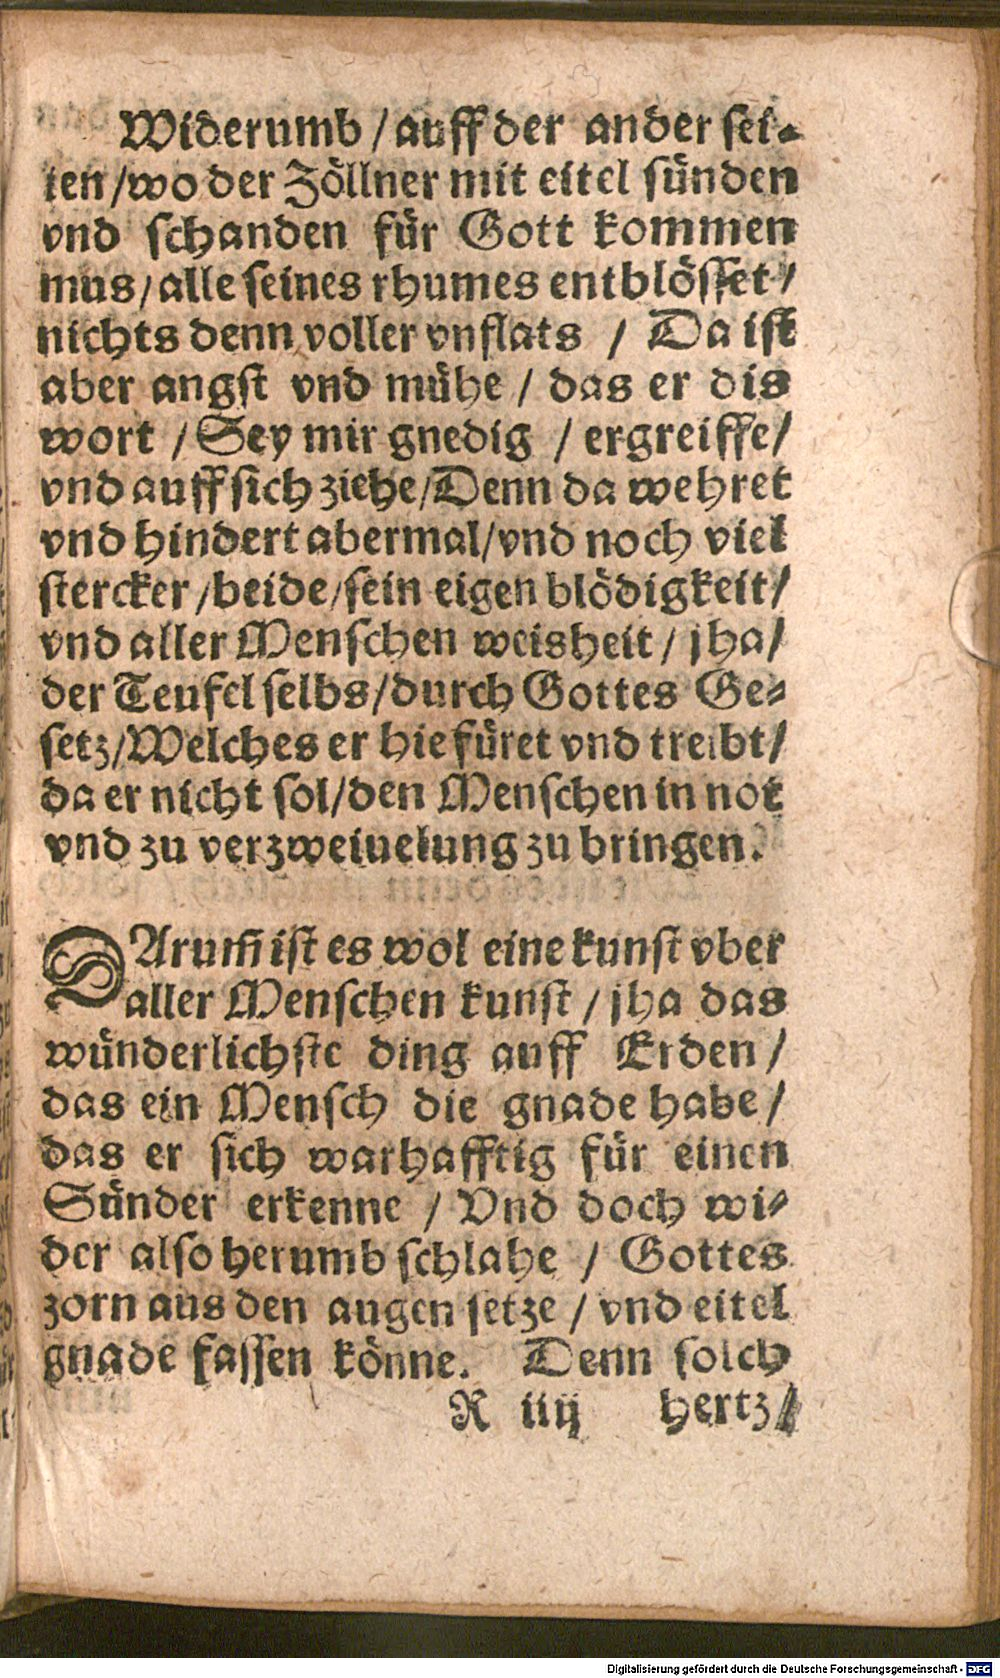 Widerumb / auff der ander sei-
ten / wo der Zöllner mit eitel sünden
vnd schanden für Gott kommen
mus / alle seines rhumes entblösset /
nichts denn voller vnflats / Da ist
aber angst vnd mühe / das er dis
wort / Sey mir gnedig / ergreiffe /
vnd auff sich ziehe / Denn da wehret
vnd hindert abermal / vnd noch viel
stercker / beide / sein eigen blödigkeit /
vnd aller Menschen weisheit / jha /
der Teufel selbs / durch Gottes Ge-
setz / Welches er hie füret vnd treibt /
da er nicht sol / den Menschen in not
vnd zu verzweiuelung zu bringen.
DArum̃ ist es wol eine kunst vber
aller Menschen kunst / jha das
wünderlichste ding auff Erden /
das ein Mensch die gnade habe /
das er sich warhafftig für einen
Sünder erkenne / Vnd doch wi-
der also herumb schlahe / Gottes
zorn aus den augen setze / vnd eitel
gnade fassen könne. Denn solch
R iiij hertz /
Digitalisierung gefördert durch die Deutsche Forschungsgemeinschaft - DFG